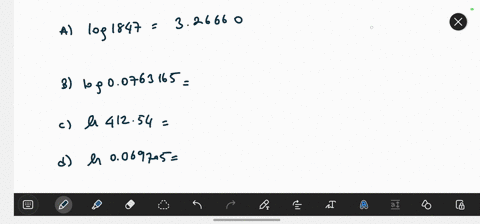 A) log 1847 = 3.26660
B) log 0.0763165 =
c) ln 412.54 =
d) ln 0.069205 =